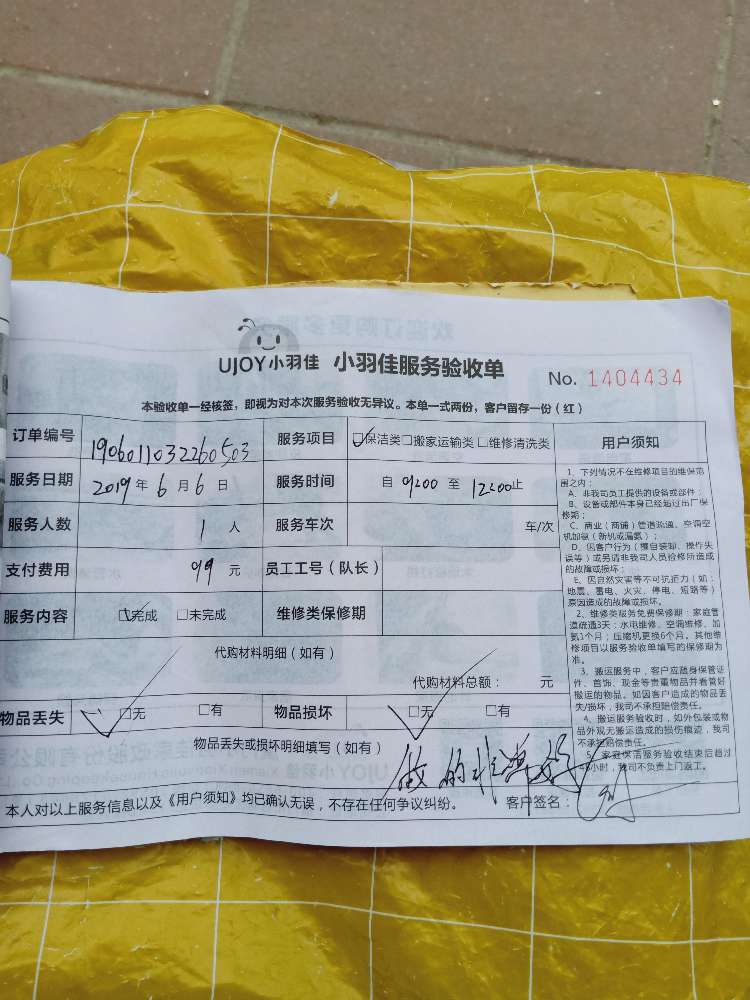 UJOY小羽佳 小羽佳服务验收单 No. 1404434
本验收单一经核签，即视为对本次服务验收无异议。本单一式两份，客户留存一份（红）
订单编号 1906011032260503 服务项目 ☑保洁类□搬家运输类□维修清洗类
服务日期 2019年6月6日 服务时间 自 9:00 至 12:00止
服务人数 1 人 服务车次 车/次
支付费用 99 元 员工工号（队长）
服务内容 ☑完成 □未完成 维修类保修期
代购材料明细（如有）
代购材料总额： 元
物品丢失 ☑无 □有 物品损坏 ☑无 □有
物品丢失或损坏明细填写（如有）
做的非常好
本人对以上服务信息以及《用户须知》均已确认无误，不存在任何争议纠纷。 客户签名：
用户须知
1、下列情况不在维修项目的维保范
围之内：
A、非我司员工提供的设备或部件；
B、设备或部件本身已经超过出厂保
修期；
C、商业（商铺）管道疏通、空调空
机加氨（新机或漏氨）；
D、因客户行为（擅自装卸、操作失
误等）或另请非我司人员检修所造成
的故障或损坏；
E、因自然灾害等不可抗拒力（如：
地震、雷电、火灾、停电、短路等）
原因造成的故障或损坏。
2、维修类服务免费保修期：家庭管
道疏通3天；水电维修、空调维修、加
氨1个月；压缩机更换6个月。其他维
修项目以服务验收单填写的保修期为
准。
3、搬运服务中，客户应随身保管证
件、首饰、现金等贵重物品并看管好
搬运的物品。如因客户造成的物品丢
失/损坏，我司不承担赔偿责任。
4、搬运服务验收时，如外包装或物
品外观无搬运造成的损伤痕迹，我司
不承担赔偿责任。
5、家庭保洁服务验收结束后超过
小时，我司不负责上门返工。